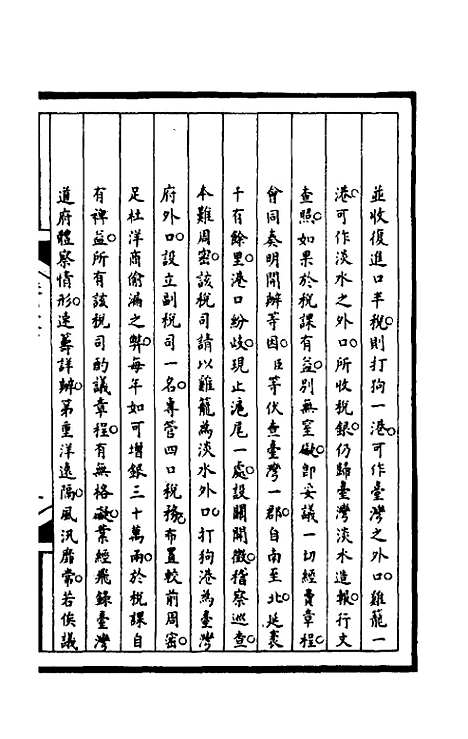 並收復進口半稅則打狗一港可作臺灣之外口雞籠一
港可作淡水之外口所收稅銀仍歸臺灣淡水造報行文
查照如果於稅課有益別無窒礙卽妥議一切經費章程
會同奏明開辦等因臣等伏查臺灣一郡自南至北延袤
千有餘里港口紛歧現止滬尾一處設關開徵稽察巡查
本難周密該稅司請以雞籠爲淡水外口打狗港爲臺灣
府外口設立副稅司一名專管四口稅務布置較前周密
足杜洋商偷漏之弊每年如可增銀三十萬兩於稅課自
有裨益所有該稅司酌議章程有無格礙業經飛錄臺灣
道府體察情形速籌詳辦第重洋遠隔風汛靡常若俟議